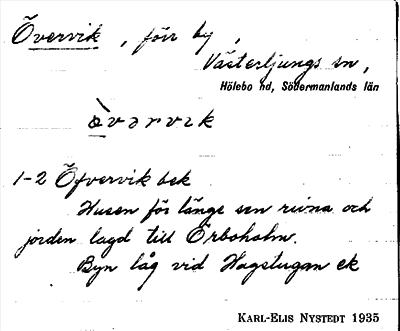 Övervik, förr by,
Västerljungs sn,
Hölebo hd, Södermanlands län
ö̀vərvɩk
1-2 Öfvervik bek
Husen för länge sen rivna och
jorden lagd till Örboholm.
Byn låg vid Hagstugan ek
KARL-ELIS NYSTEDT 1935